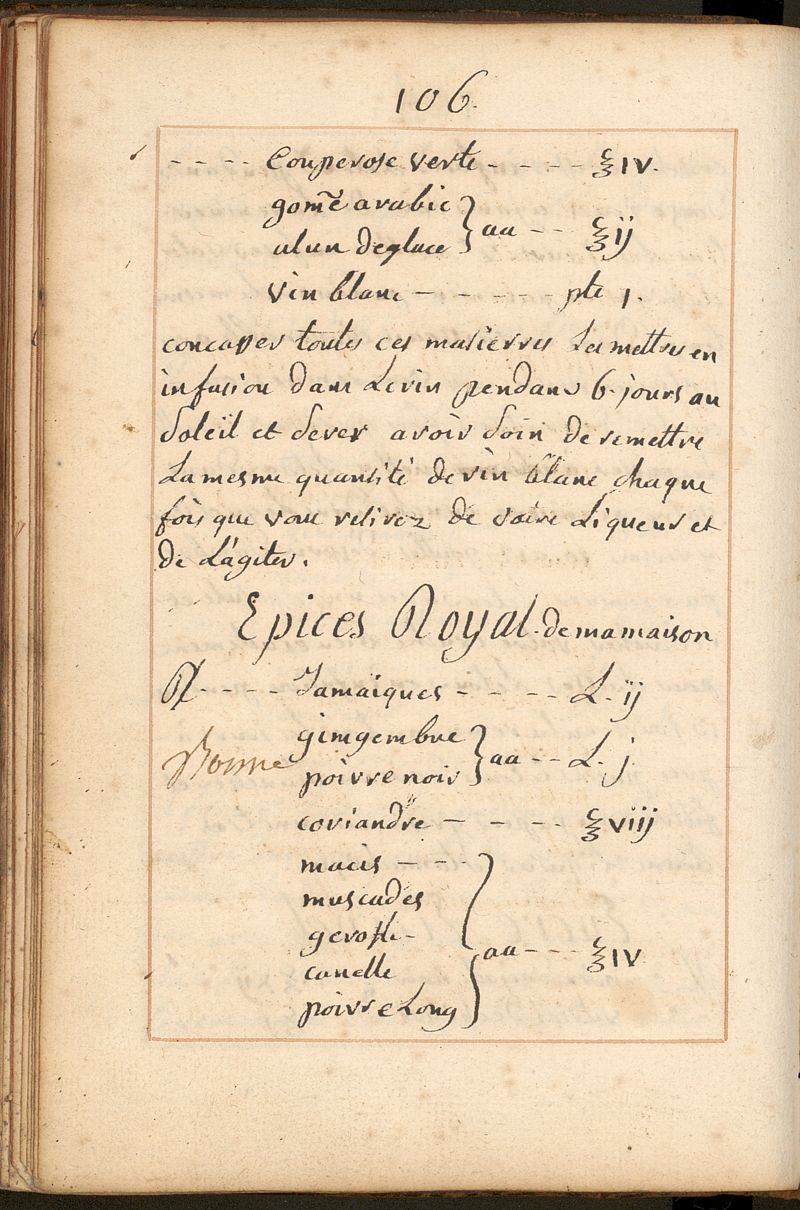 106.
- - - - Couperose verte - - - - ℥ IV.
gom̃e arabic
alun deglace } aa - - - ℥ ij
vin blanc - - - - - pte 1.
concasser toutes ces matierres Les mettres en
infusion dans Levin pendans 6. jours au
Soleil et Serer avoir Soin de remettre
La mesme quantité de vin blanc chaque
fois que vous retirez de votre Liqueur et
de L'agiter.
Epices Royal. de ma maison
℞ - - - - Jamaïques - - - - L. ij
gimgembre
Bonne poivre noir } aa - - L. j
coriandre - - - - - ℥ viij
macis - - - -
muscades
gerofle -
canelle } aa - - - ℥ IV
poivre Long